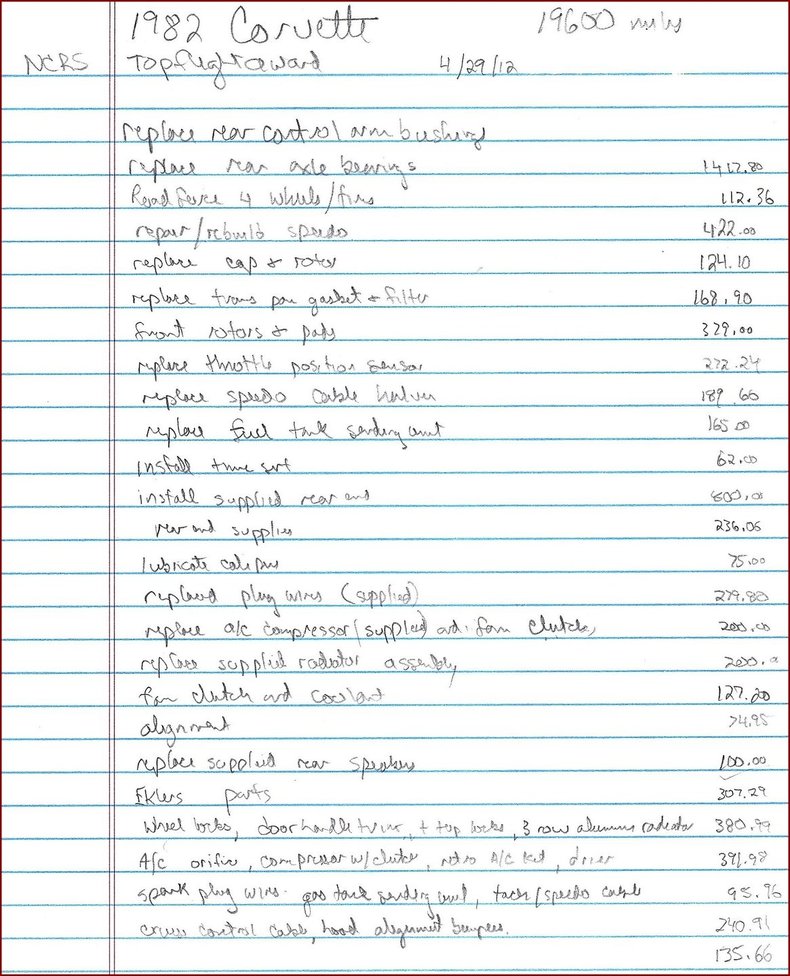 1982 Corvette 19600 miles
NCRS Topflight award 4/29/12
replace rear control arm bushings
replace rear axle bearings 1412.80
Roadforce 4 wheels/tires 112.36
repair/rebuild speedo 422.00
replace cap & rotor 124.10
replace trans pan gasket & filter 168.90
front rotors & pads 329.00
replace throttle position sensor 272.24
replace speedo cable halves 189.66
replace fuel tank sending unit 165.00
install tune 62.00
install supplied rear end 800.00
rear end supplies 236.05
lubricate calipers 75.00
replaced plug wires (supplied) 279.80
replace a/c compressor (supplied) and fan clutch, 200.00
replace supplied radiator assembly, 200.0
fan clutch and coolant 127.20
alignment 74.95
replace supplied rear speakers 100.00
Eklers parts 307.29
wheel locks, door handle trim, t top locks, 3 row aluminum radiator 380.99
A/c orifice, compressor w/clutch, retro A/C kit, drier 391.98
spark plug wires. gas tank sending unit, tach/speedo cable 95.96
cruise control cable, hood alignment bumpers. 240.91
135.66